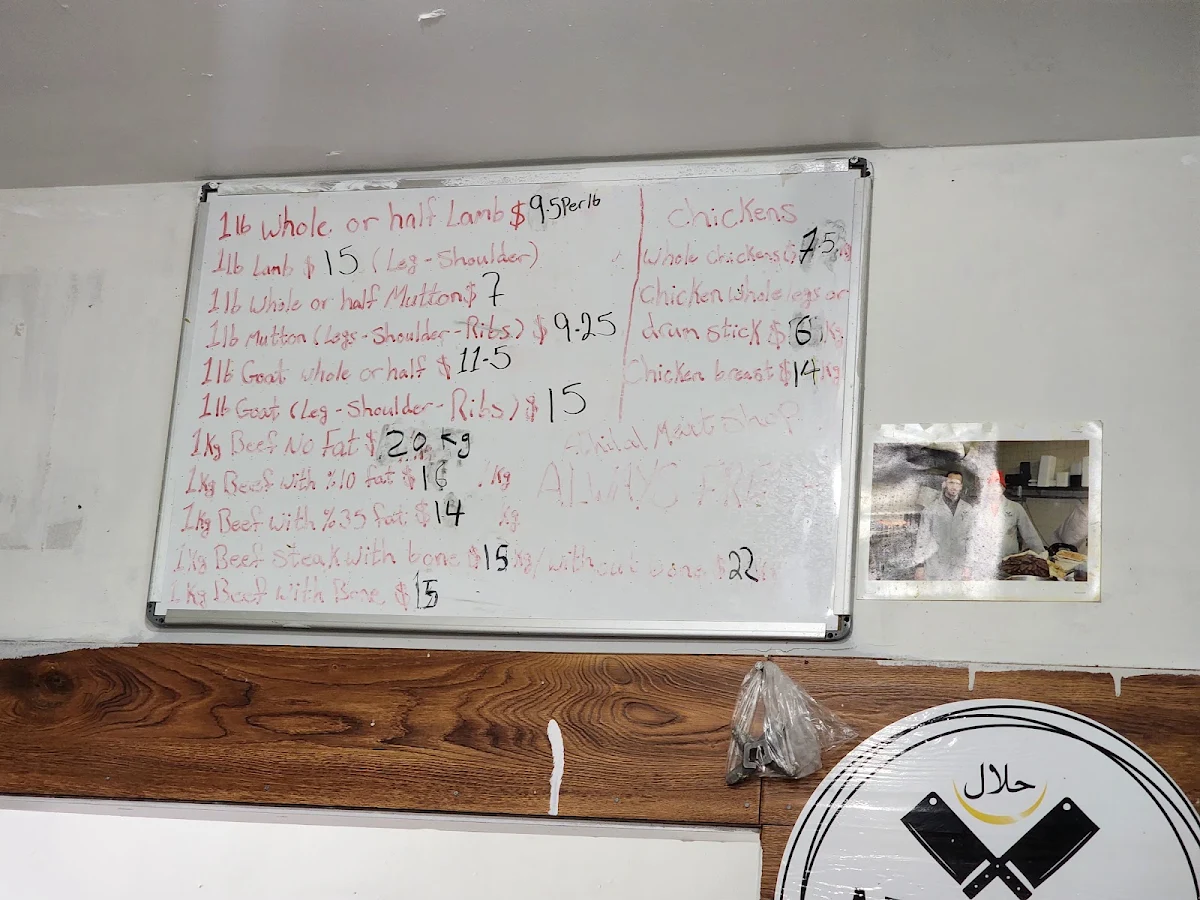 1lb whole or half Lamb $ 9.5 Per lb
1lb Lamb $ 15 (Leg-Shoulder)
1lb whole or half Mutton $ 7
1lb Mutton (Legs-Shoulder-Ribs) $ 9.25
1lb Goat whole or half $ 11.5
1lb Goat (Leg-Shoulder-Ribs) $ 15
1Kg Beef No Fat $ 20 Kg
1Kg Beef with %10 fat $ 16 /Kg
1Kg Beef with %35 fat $ 14 Kg
1Kg Beef Steak with bone $ 15 Kg/without bone $ 22
1Kg Beef with Bone $ 15
Chickens
Whole chickens $ 7.5
Chicken whole legs or
drum stick $ 6 /Kg
Chicken breast $ 14 Kg
Meat Shop
حلال